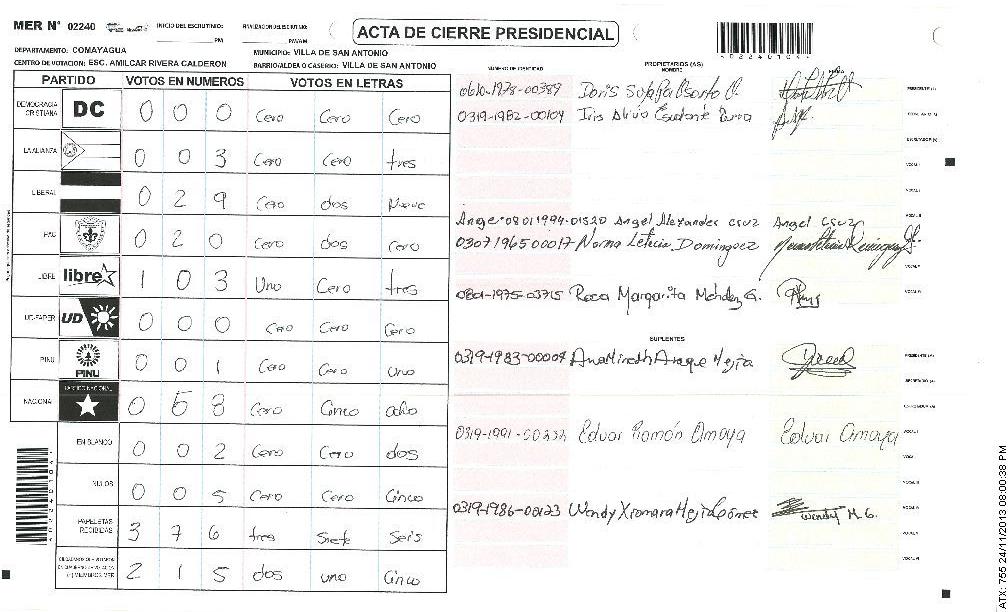 MER N° 02240 INICIO DEL ESCRUTINIO: FINALIZACION DEL ESCRUTINIO:
PM PM/AM
ACTA DE CIERRE PRESIDENCIAL
DEPARTAMENTO: COMAYAGUA MUNICIPIO: VILLA DE SAN ANTONIO
CENTRO DE VOTACION: ESC. AMILCAR RIVERA CALDERON BARRIO/ALDEA O CASERIO: VILLA DE SAN ANTONIO
PARTIDO VOTOS EN NUMEROS VOTOS EN LETRAS
DEMOCRACIA CRISTIANA DC 0 0 0 Cero Cero Cero
LA ALIANZA 0 0 3 Cero Cero tres
LIBERAL 0 2 9 Cero dos Nueve
PAC 0 2 0 Cero dos Cero
LIBRE libre 1 0 3 Uno Cero tres
UD-FAPER UD 0 0 0 Cero Cero Cero
PINU PINU 0 0 1 Cero Cero Uno
NACIONAL PARTIDO NACIONAL 0 5 8 Cero Cinco ocho
EN BLANCO 0 0 2 Cero Cero dos
NULOS 0 0 5 Cero Cero Cinco
PAPELETAS RECIBIDAS 3 7 6 tres Siete Seis
2 1 5 dos uno Cinco
NUMERO DE IDENTIDAD PROPIETARIOS (AS) NOMBRE FIRMA
0610-1978-00389 Doris
0319-1982-00104 Iris
Angel 08011994-01520 Angel Alexander Cruz Angel Cruz
0307196500017 Norma Leticia Dominguez
0801-1975-03715 Rosa Margarita Méndez G.
SUPLENTES
0319-1983-00004
0319-1991-00332 Edvar Ramón Amaya Edvar Amaya
0319-1986-00123 Wendy Xiomara Mejia Gómez Wendy M. G.
A02240104
ATX: 755 24/11/2013 08:00:38 PM